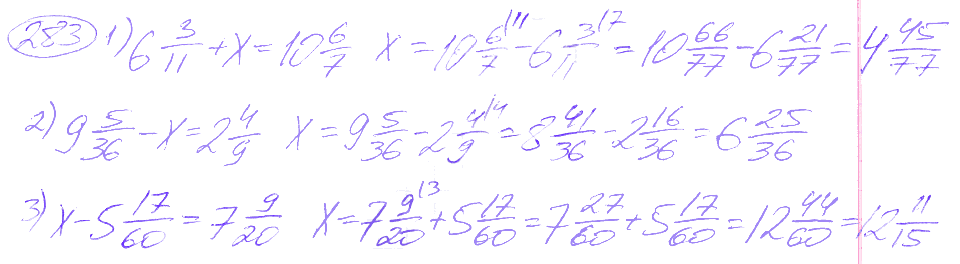 283 1) 6 3/11 + x = 10 6/7 x = 10 6/7 ^11 - 6 3/11 ^7 = 10 66/77 - 6 21/77 = 4 45/77
2) 9 5/36 - x = 2 4/9 x = 9 5/36 - 2 4/9 ^4 = 8 41/36 - 2 16/36 = 6 25/36
3) x - 5 17/60 = 7 9/20 x = 7 9/20 ^3 + 5 17/60 = 7 27/60 + 5 17/60 = 12 44/60 = 12 11/15